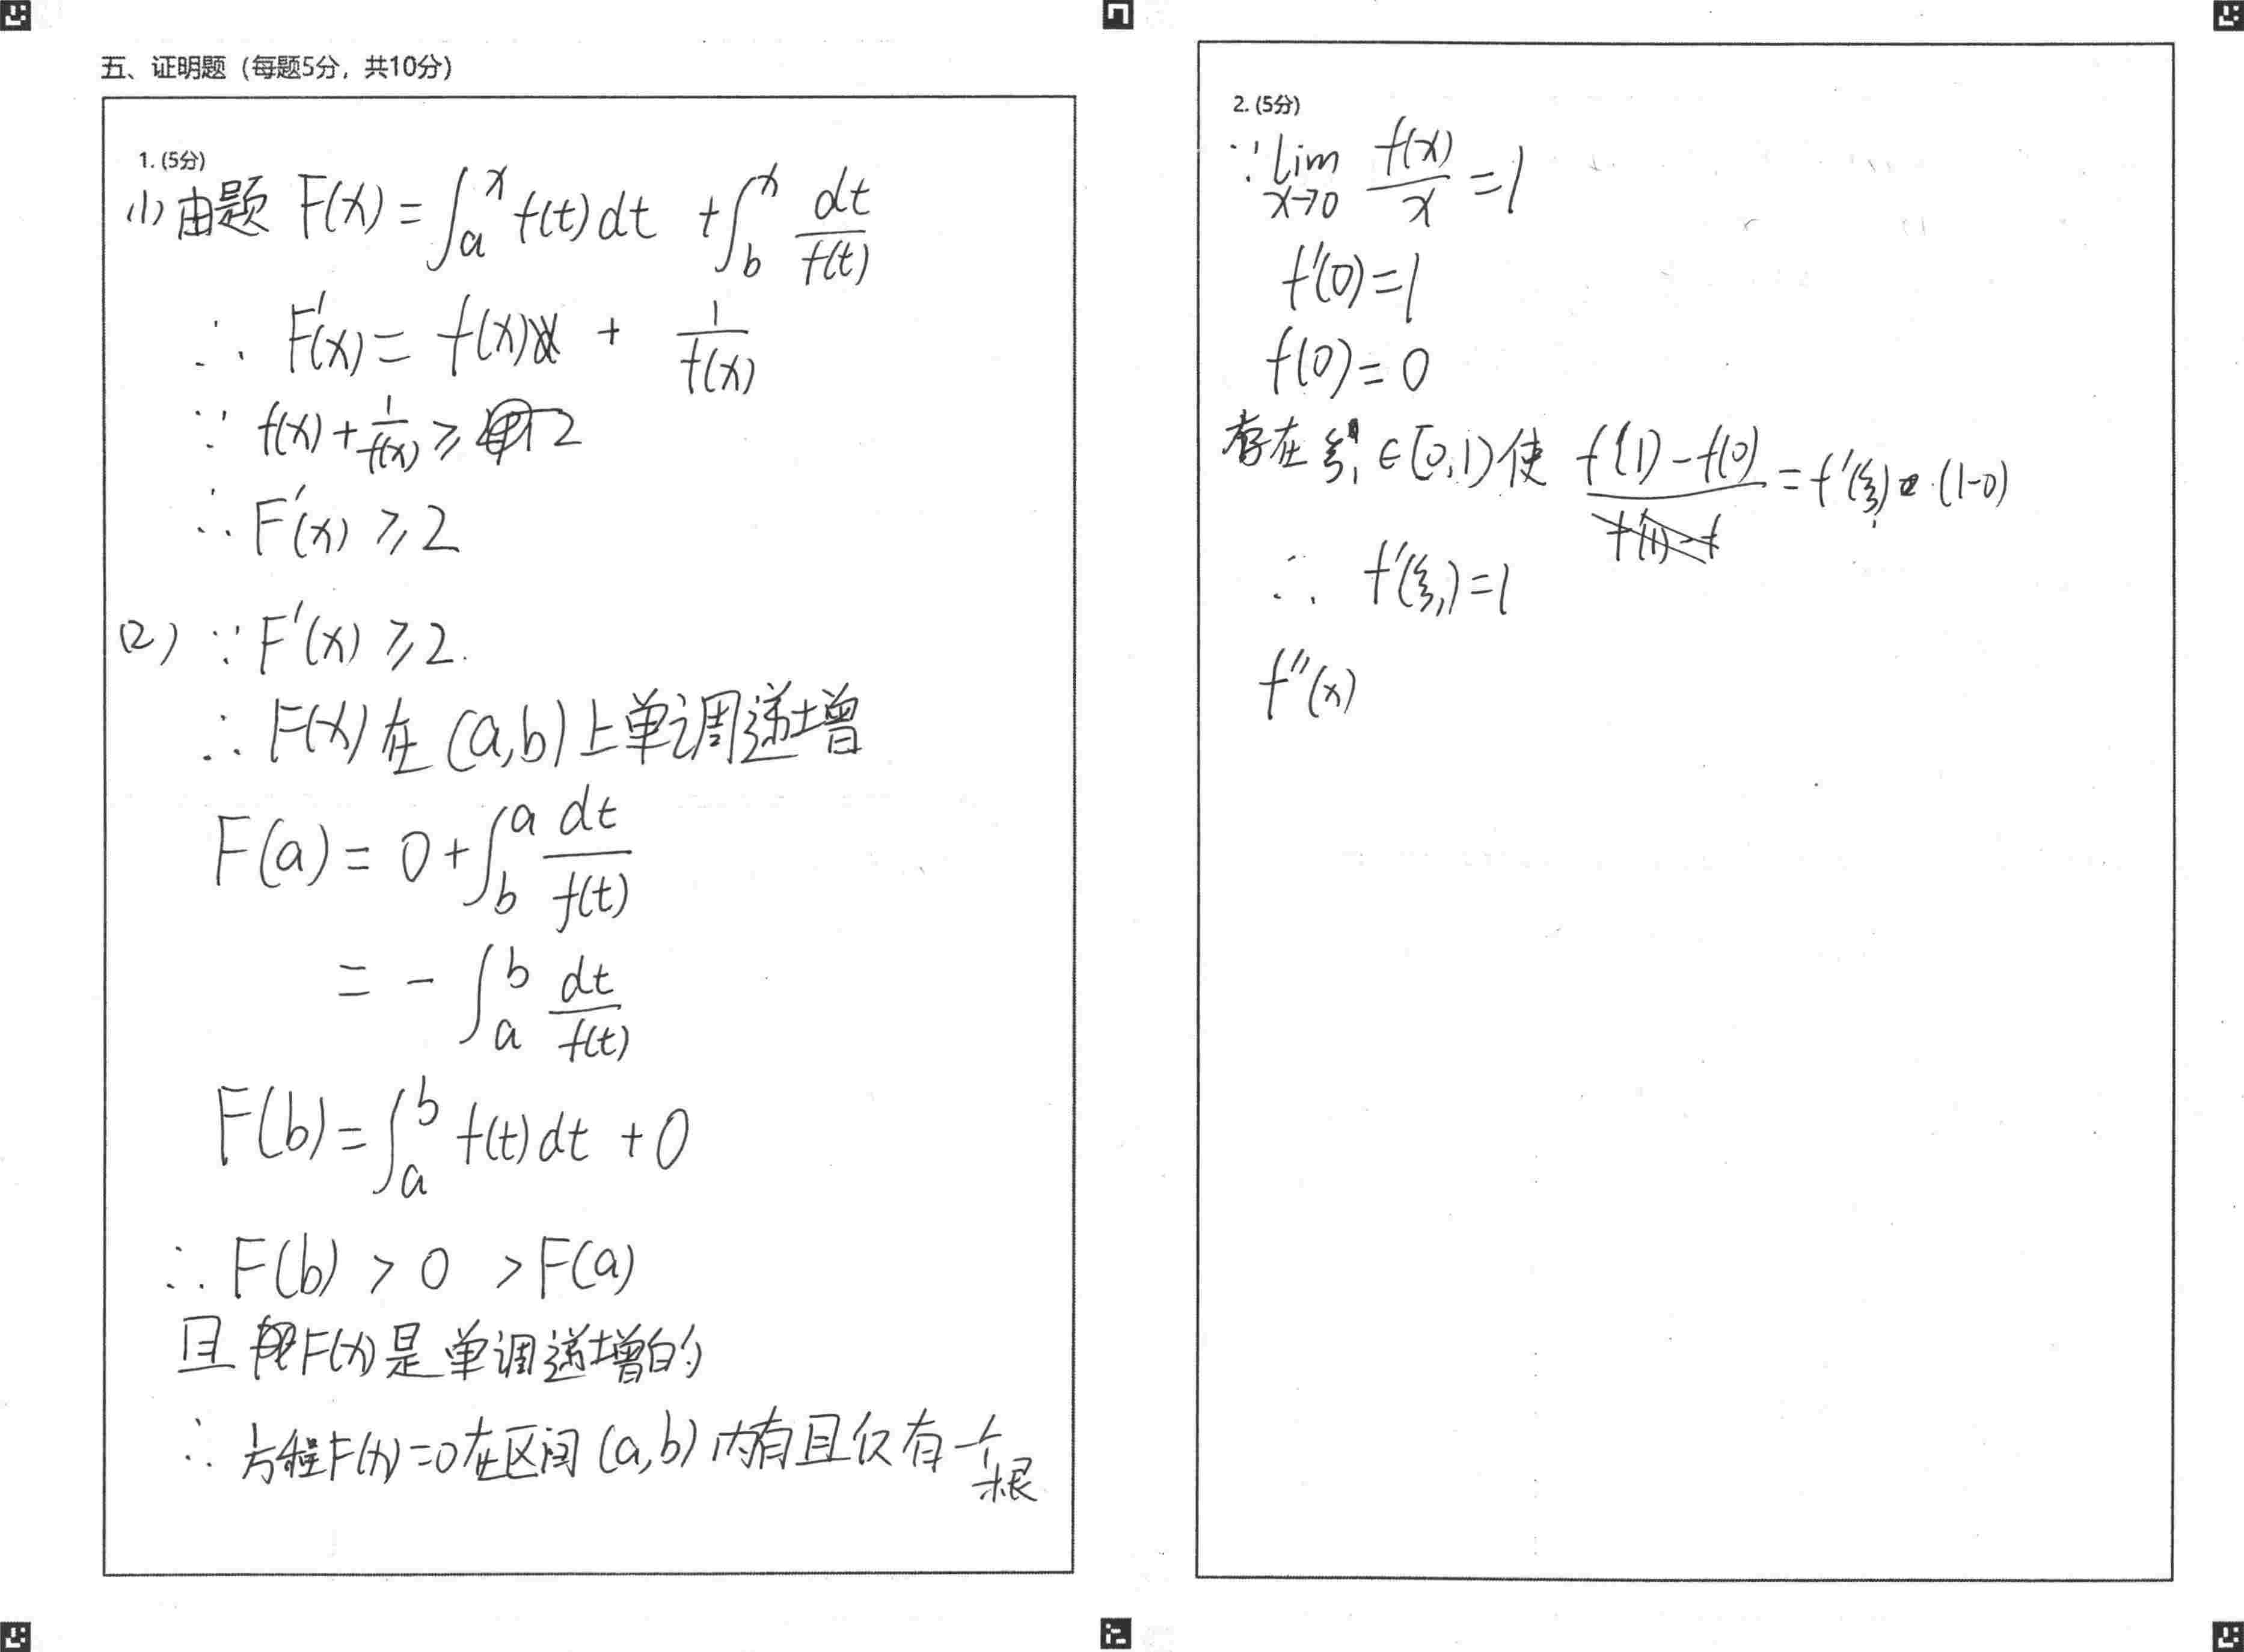 五、证明题（每题5分，共10分）
1. (5分)
(1) 由题 F(x) = ∫_a^x f(t) dt + ∫_b^x dt/f(t)
∴ F'(x) = f(x) + 1/f(x)
∵ f(x) + 1/f(x) ≥ 2
∴ F'(x) ≥ 2
(2) ∵ F'(x) ≥ 2.
∴ F(x) 在 (a,b) 上单调递增
F(a) = 0 + ∫_b^a dt/f(t)
= - ∫_a^b dt/f(t)
F(b) = ∫_a^b f(t) dt + 0
∴ F(b) > 0 > F(a)
且 F(x) 是单调递增的
∴ 方程F(x)=0在区间 (a,b) 内有且仅有一个根
2. (5分)
∵ lim_{x→0} f(x)/x = 1
f'(0) = 1
f(0) = 0
存在 ξ₁ ∈ [0,1) 使 f(1) - f(0) = f'(ξ₁) · (1-0)
∴ f'(ξ₁) = 1
f''(x)